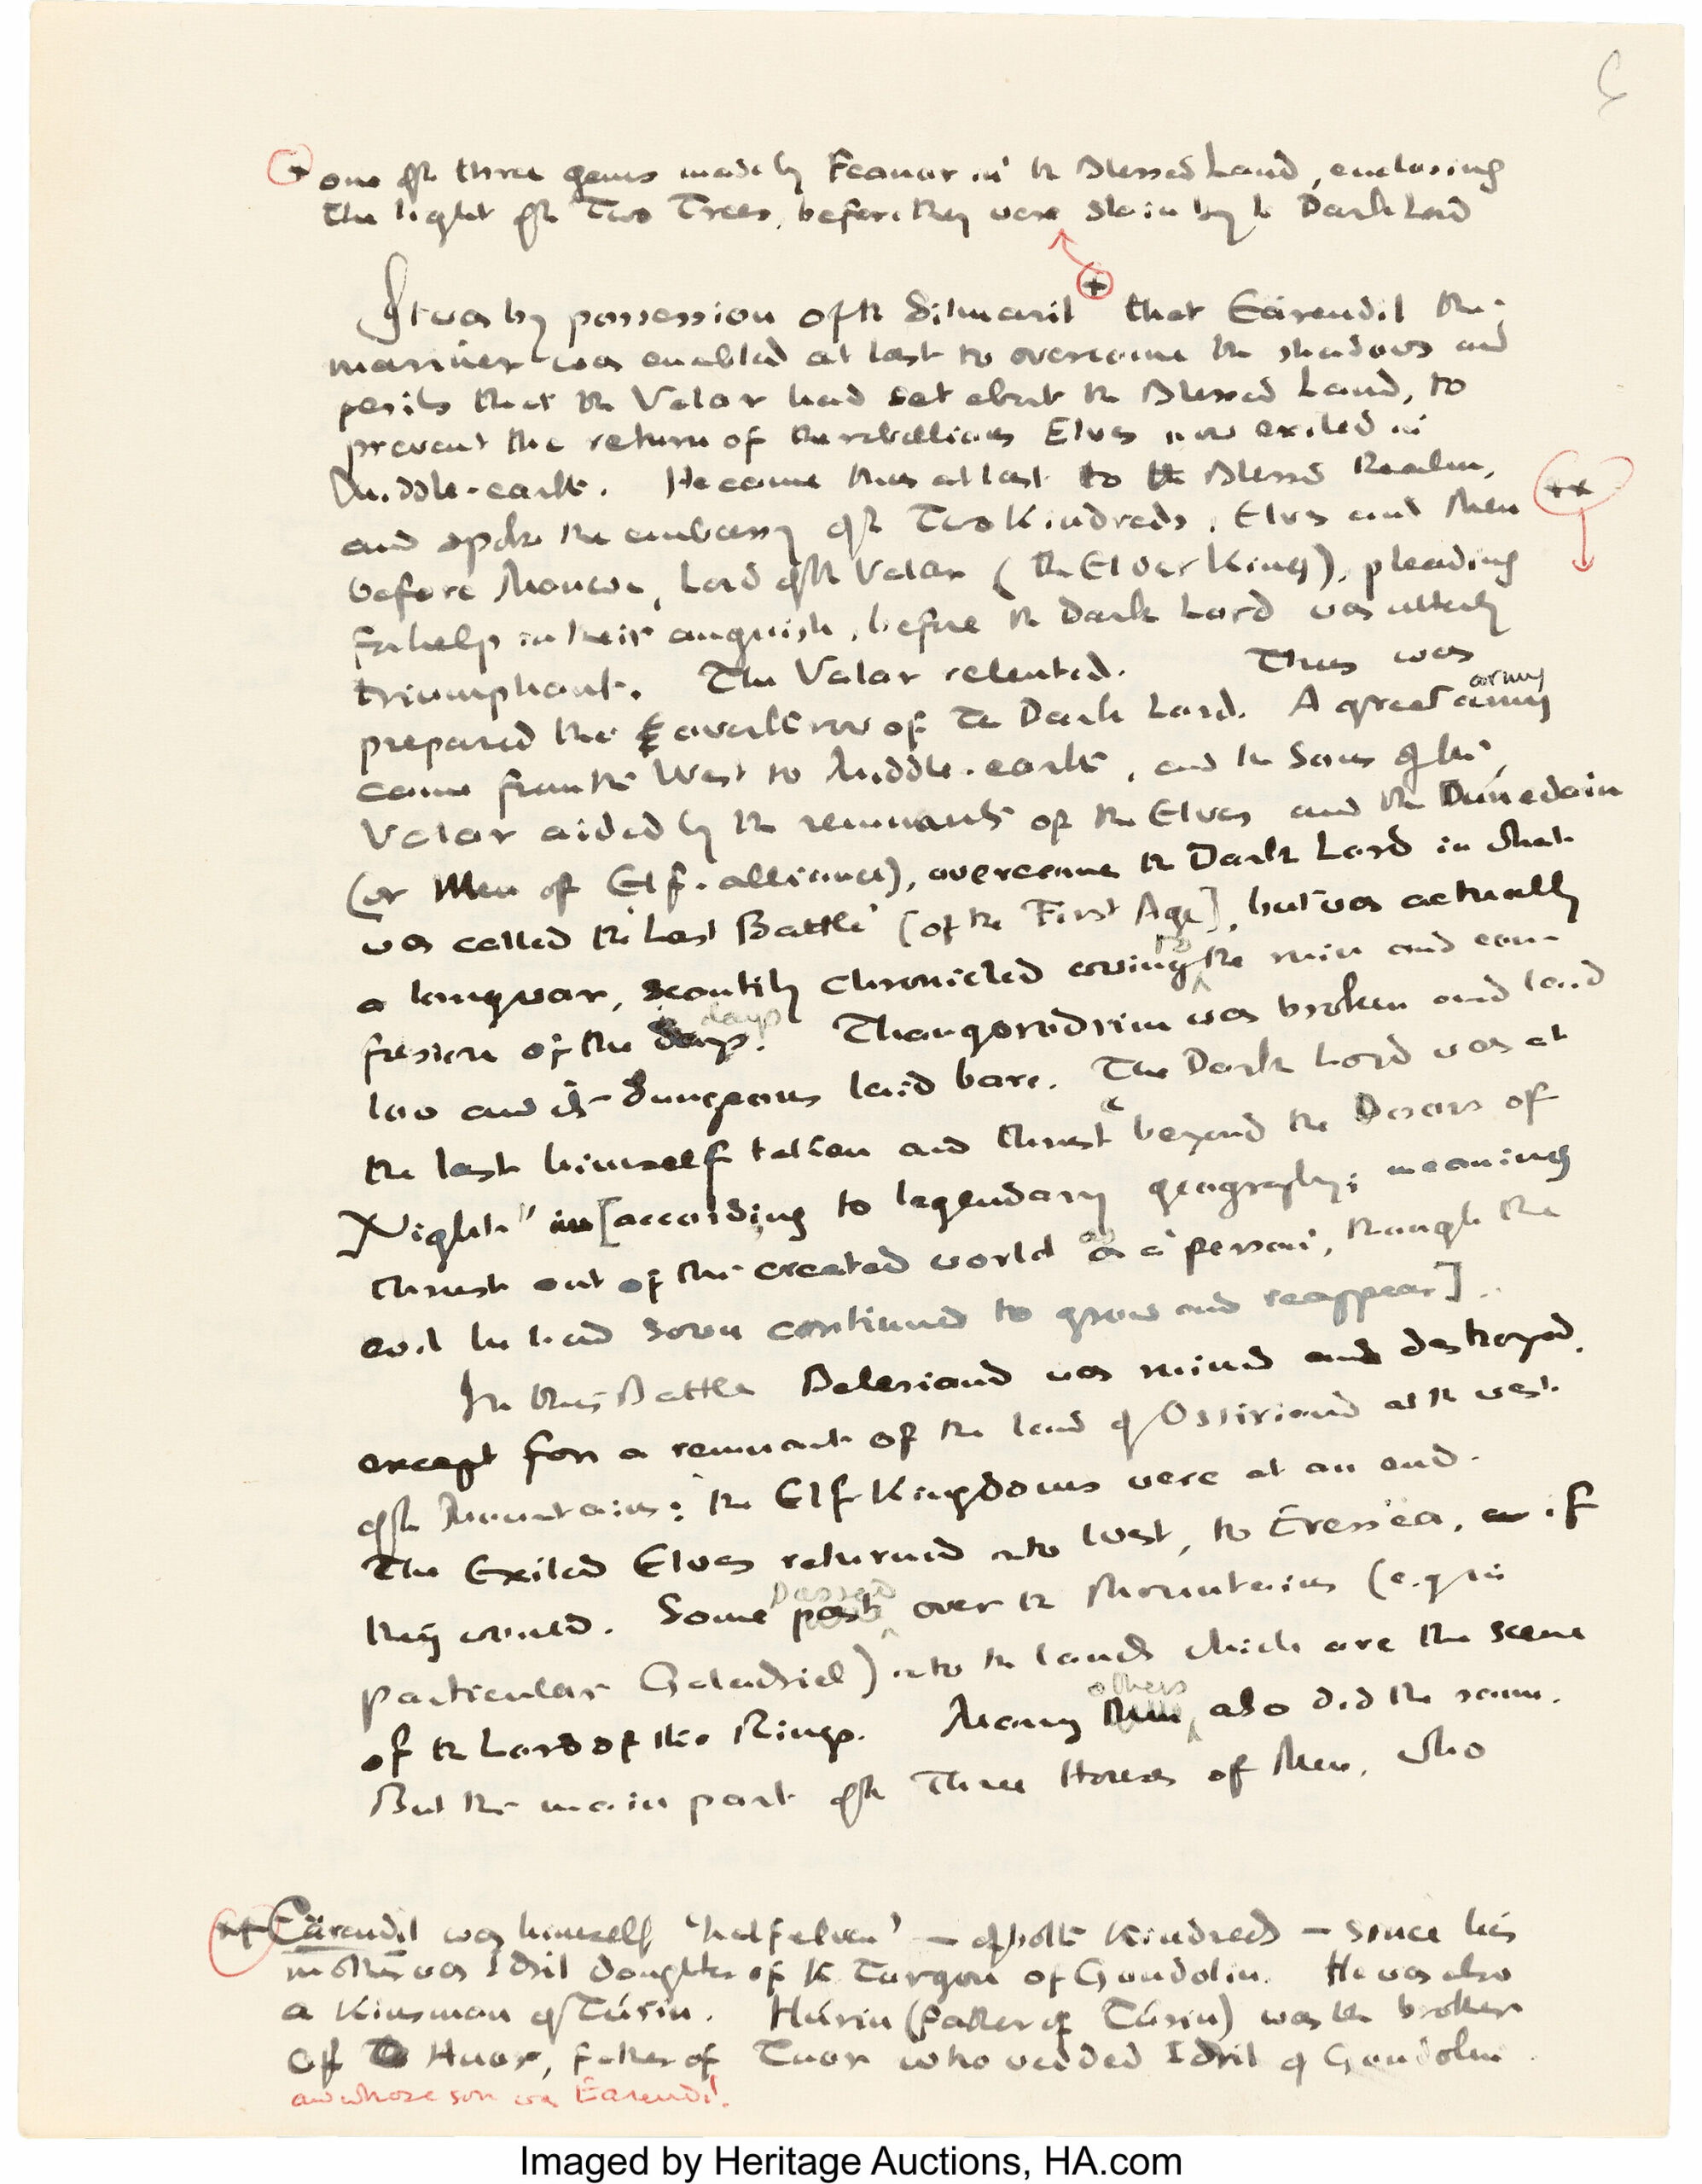 6
+ one of the three gems made by Feanor in the Blessed Land, enclosing
the light of the Two Trees, before they were slain by the Dark Lord
+
It was by possession of the Silmaril that Eärendil the
mariner was enabled at last to overcome the shadows and
perils that the Valar had set about the Blessed Land, to
prevent the return of the rebellious Elves now exiled in
Middle-earth. He came thus at last to the Blessed Realm,
++
and spoke the embassy of the Two Kindreds, Elves and Men
before Manwe, Lord of the Valar (the Elder King), pleading
for help in their anguish, before the Dark Lord was utterly
triumphant. The Valar relented. Thus was
army
prepared the overthrow of the Dark Lord. A great army
came from the West to Middle-earth, and the Sons of the
Valar aided by the remnants of the Elves and the Dúnedain
(or Men of Elf-alliance), overcame the Dark Lord in what
was called the 'Last Battle' [of the First Age], but was actually
to
a long war, scantily chronicled owing the ruin and con-
days
fusion of the days. Thangorodrim was broken and laid
low and its dungeons laid bare. The Dark Lord was at
the last himself taken and thrust "beyond the Doors of
Night" in [according to legendary geography; meaning
as
thrust out of the created world as a 'person', though the
evil he had sown continued to grow and reappear].
In this Battle Beleriand was ruined and destroyed,
except for a remnant of the land of Ossiriand at the west
of the Mountains: the Elf Kingdoms were at an end.
The Exiled Elves returned into West, to Eressëa, if
passed
they would. Some past over the Mountains (e.g. in
particular Galadriel) into the lands which are the scene
others
of the Lord of the Rings. Many Men also did the same.
But the main part of the Three Houses of Men, who
++ Eärendil was himself 'halfelven' – of both Kindreds – since his
mother was Idril daughter of K. Turgon of Gondolin. He was also
a kinsman of Túrin. Húrin (father of Túrin) was the brother
of Huor, father of Tuor who wedded Idril of Gondolin.
and whose son was Earendil.
Imaged by Heritage Auctions, HA.com